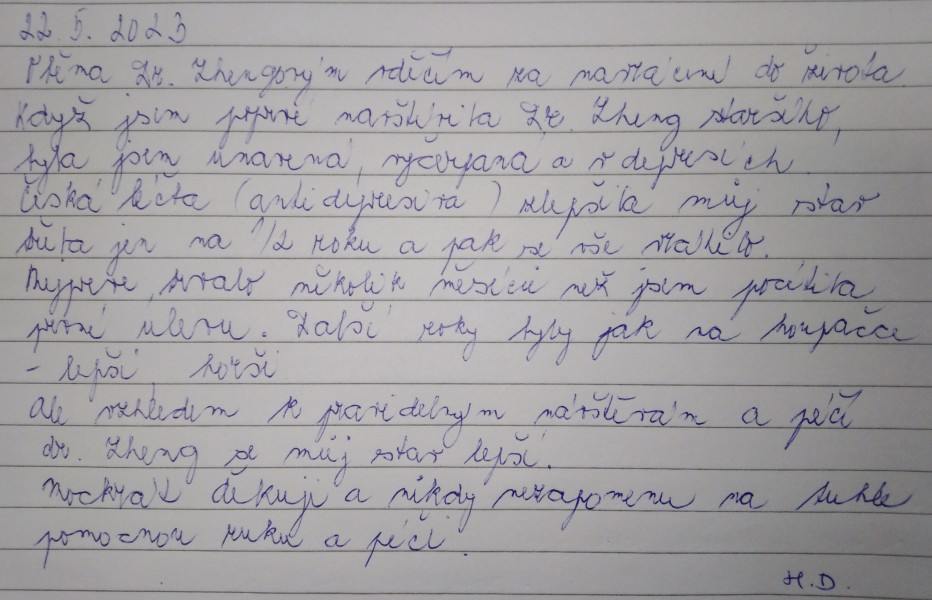 22. 5. 2023
Dr. Zhengovým vděčím za navrácení do života.
Když jsem poprvé navštívila Dr. Zheng staršího,
byla jsem unavená, vyčerpaná a v depresích.
Čiská léčba (antidepresiva) zlepšila můj stav
jen na 1/2 roku a pak se vše vrátilo.
Nejprve trvalo několik měsíců než jsem pocítila
první úlevu. Další roky byly jak na houpačce
- lepší, horší
Ale vzhledem k pravidelným návštěvám a péči
dr. Zheng se můj stav lepší.
Mockrát děkuji a nikdy nezapomenu na tuhle
pomocnou ruku a péči.
H.D.